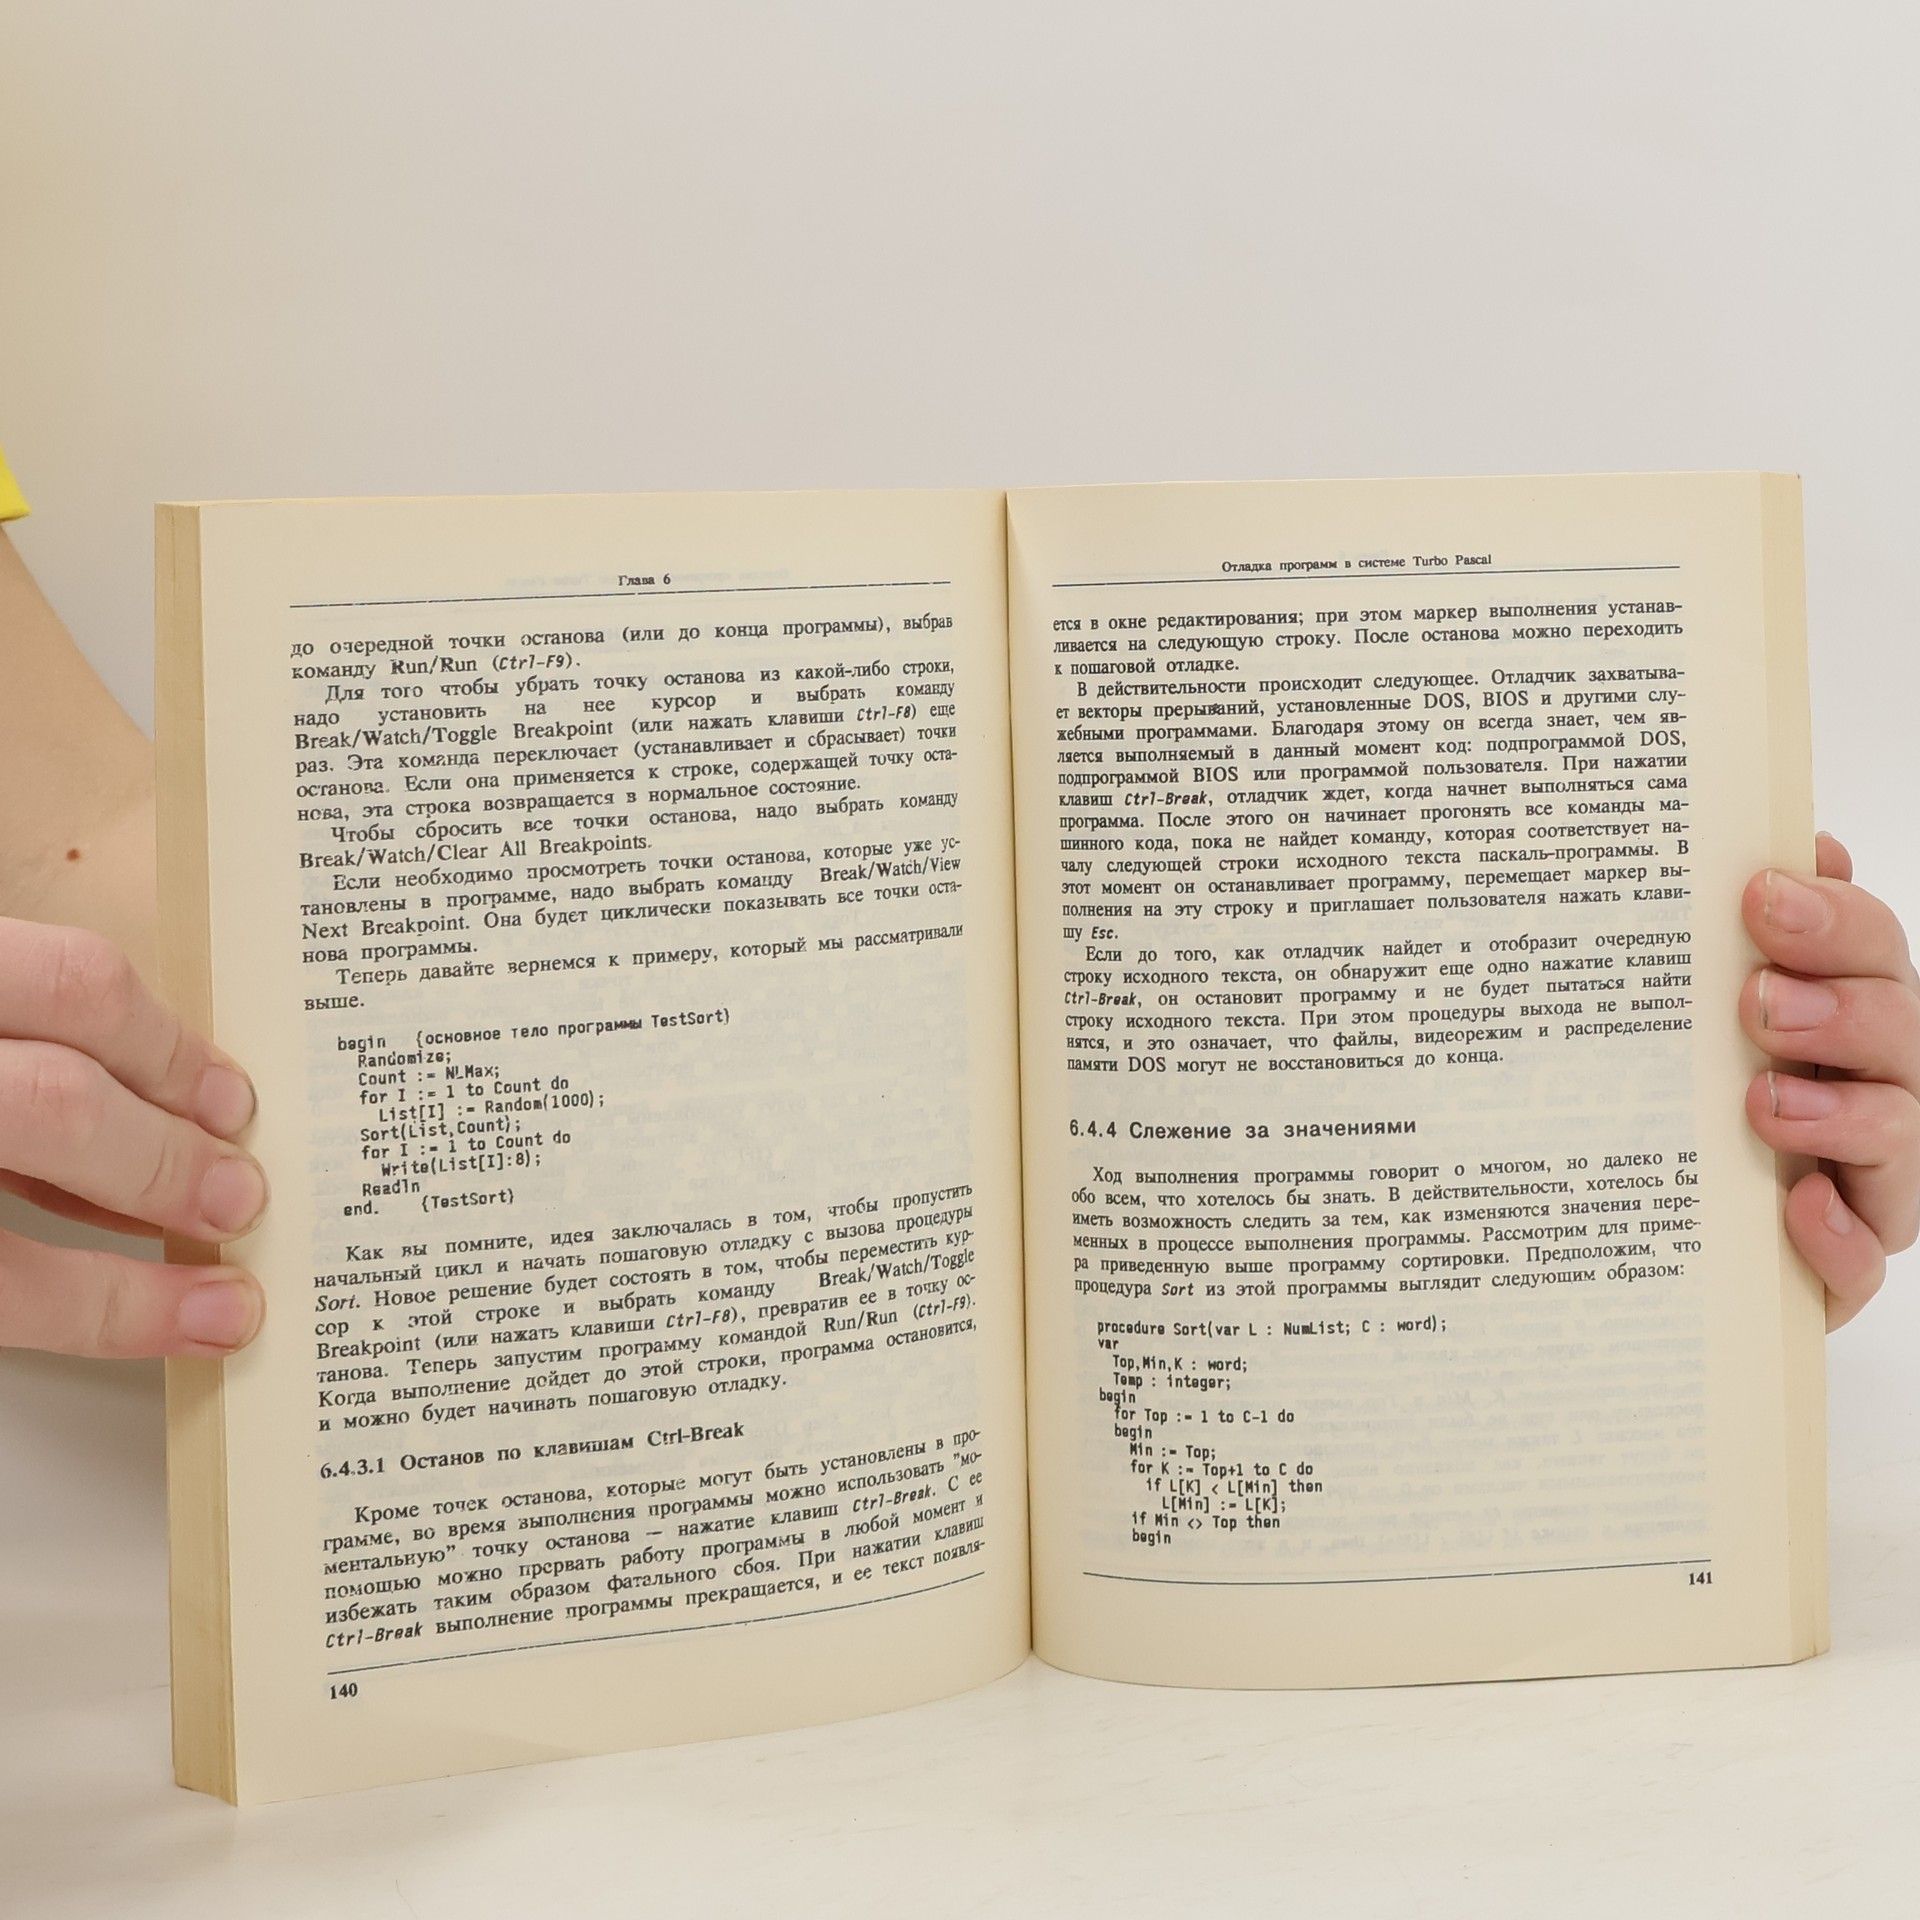 Глава 6
до очередной точки останова (или до конца программы), выбрав
команду Run/Run (Ctrl-F9).
Для того чтобы убрать точку останова из какой-либо строки,
надо установить на нее курсор и выбрать команду
Break/Watch/Toggle Breakpoint (или нажать клавиши Ctrl-F8) еще
раз. Эта команда переключает (устанавливает и сбрасывает) точки
останова. Если она применяется к строке, содержащей точку оста-
нова, эта строка возвращается в нормальное состояние.
Чтобы сбросить все точки останова, надо выбрать команду
Break/Watch/Clear All Breakpoints.
Если необходимо просмотреть точки останова, которые уже ус-
тановлены в программе, надо выбрать команду Break/Watch/View
Next Breakpoint. Она будет циклически показывать все точки оста-
нова программы.
Теперь давайте вернемся к примеру, который мы рассматривали
выше.
begin {основное тело программы TestSort}
Randomize;
Count := NLMax;
for I := 1 to Count do
List[I] := Random(1000);
Sort(List,Count);
for I := 1 to Count do
Write(List[I]:8);
Readln
end. {TestSort}
Как вы помните, идея заключалась в том, чтобы пропустить
начальный цикл и начать пошаговую отладку с вызова процедуры
Sort. Новое решение будет состоять в том, чтобы переместить кур-
сор к этой строке и выбрать команду Break/Watch/Toggle
Breakpoint (или нажать клавиши Ctrl-F8), превратив ее в точку ос-
танова. Теперь запустим программу командой Run/Run (Ctrl-F9).
Когда выполнение дойдет до этой строки, программа остановится,
и можно будет начинать пошаговую отладку.
6.4.3.1 Останов по клавишам Ctrl-Break
Кроме точек останова, которые могут быть установлены в про-
грамме, во время выполнения программы можно использовать "мо-
ментальную" точку останова — нажатие клавиш Ctrl-Break. С ее
помощью можно прервать работу программы в любой момент и
избежать таким образом фатального сбоя. При нажатии клавиш
Ctrl-Break выполнение программы прекращается, и ее текст появля-
140
Отладка программ в системе Turbo Pascal
ется в окне редактирования; при этом маркер выполнения устанав-
ливается на следующую строку. После останова можно переходить
к пошаговой отладке.
В действительности происходит следующее. Отладчик захватыва-
ет векторы прерываний, установленные DOS, BIOS и другими слу-
жебными программами. Благодаря этому он всегда знает, чем яв-
ляется выполняемый в данный момент код: подпрограммой DOS,
подпрограммой BIOS или программой пользователя. При нажатии
клавиш Ctrl-Break, отладчик ждет, когда начнет выполняться сама
программа. После этого он начинает прогонять все команды ма-
шинного кода, пока не найдет команду, которая соответствует на-
чалу следующей строки исходного текста паскаль-программы. В
этот момент он останавливает программу, перемещает маркер вы-
полнения на эту строку и приглашает пользователя нажать клави-
шу Esc.
Если до того, как отладчик найдет и отобразит очередную
строку исходного текста, он обнаружит еще одно нажатие клавиш
Ctrl-Break, он остановит программу и не будет пытаться найти
строку исходного текста. При этом процедуры выхода не выпол-
нятся, и это означает, что файлы, видеорежим и распределение
памяти DOS могут не восстановиться до конца.
6.4.4 Слежение за значениями
Ход выполнения программы говорит о многом, но далеко не
обо всем, что хотелось бы знать. В действительности, хотелось бы
иметь возможность следить за тем, как изменяются значения пере-
менных в процессе выполнения программы. Рассмотрим для приме-
ра приведенную выше программу сортировки. Предположим, что
процедура Sort из этой программы выглядит следующим образом:
procedure Sort(var L : NumList; C : word);
var
Top,Min,K : word;
Temp : integer;
begin
for Top := 1 to C-1 do
begin
Min := Top;
for K := Top+1 to C do
if L[K] < L[Min] then
L[Min] := L[K];
if Min <> Top then
begin
141